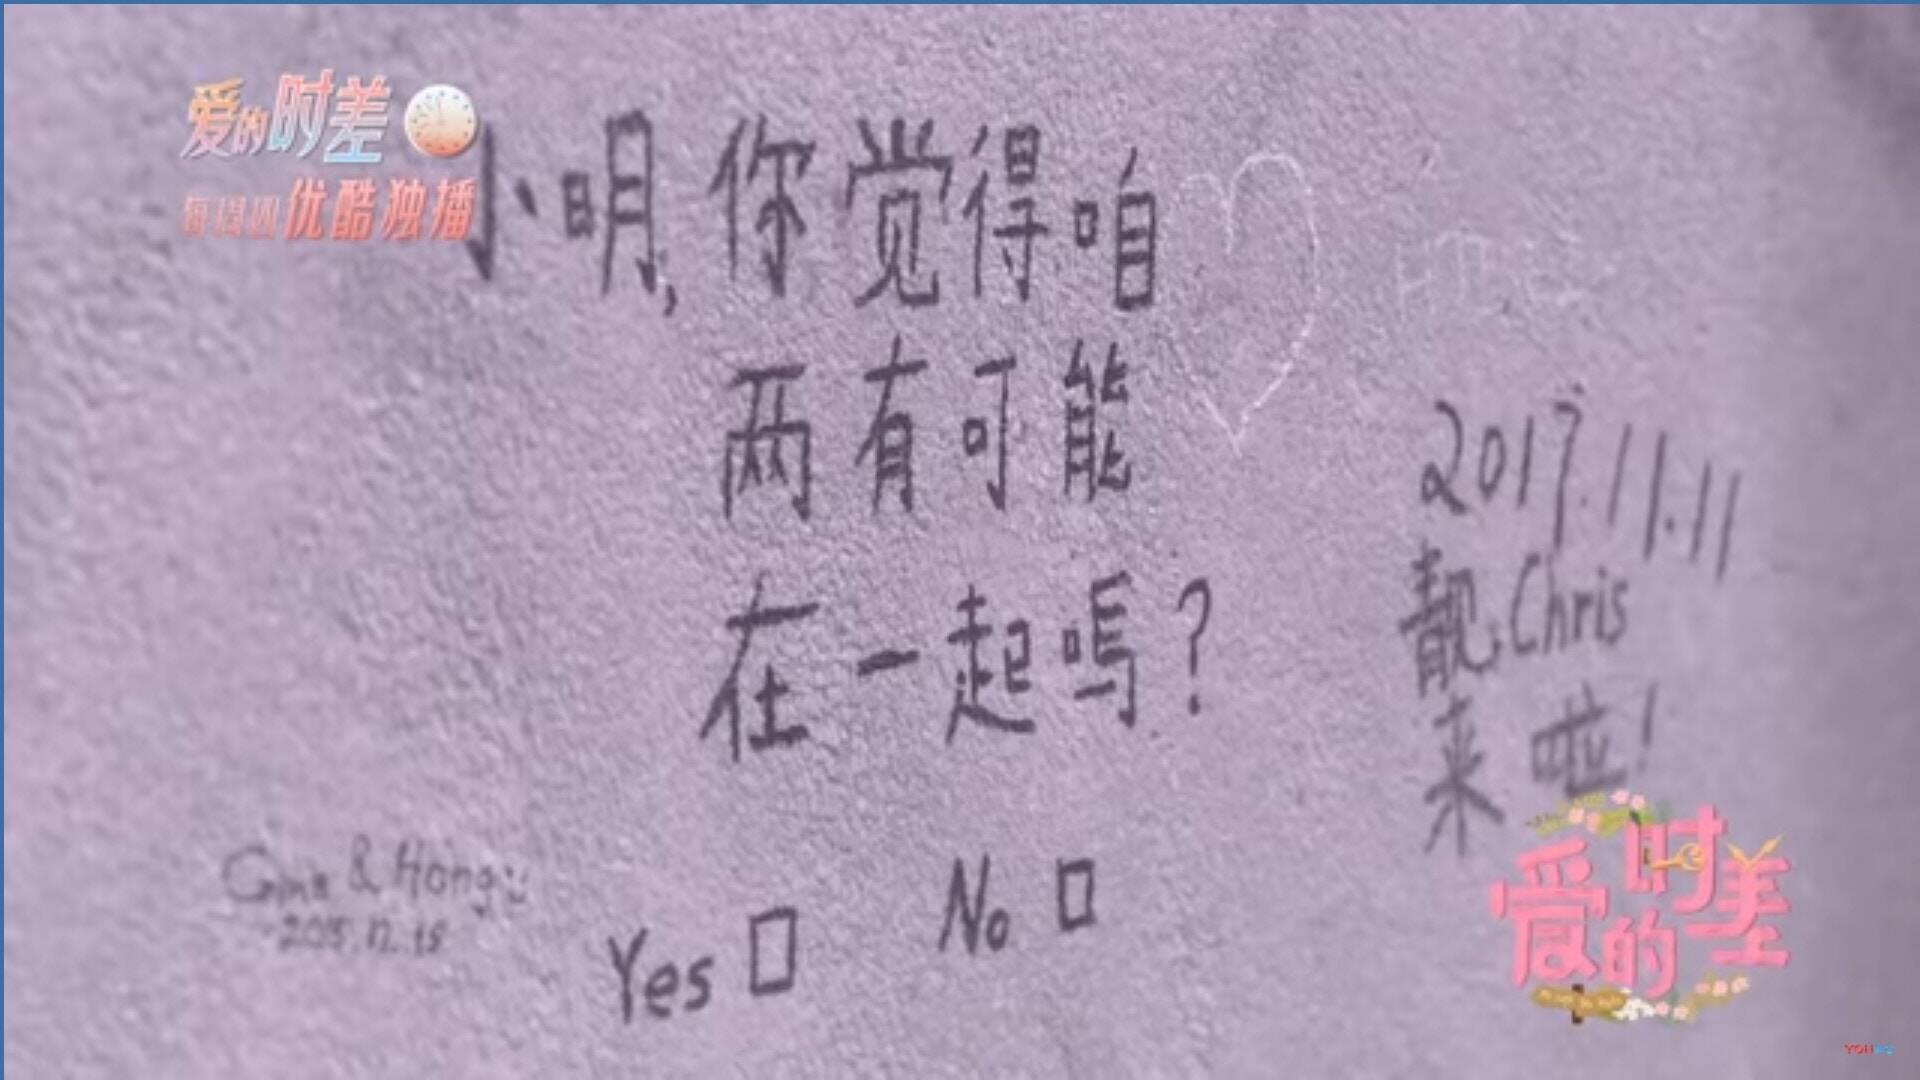 爱的时差
每周四优酷独播
小明,你觉得咱
两有可能
在一起吗?
Yes □
No □
2017.11.11
靓Chris
来啦!
Gina & Hong
爱的时差
YOUKU